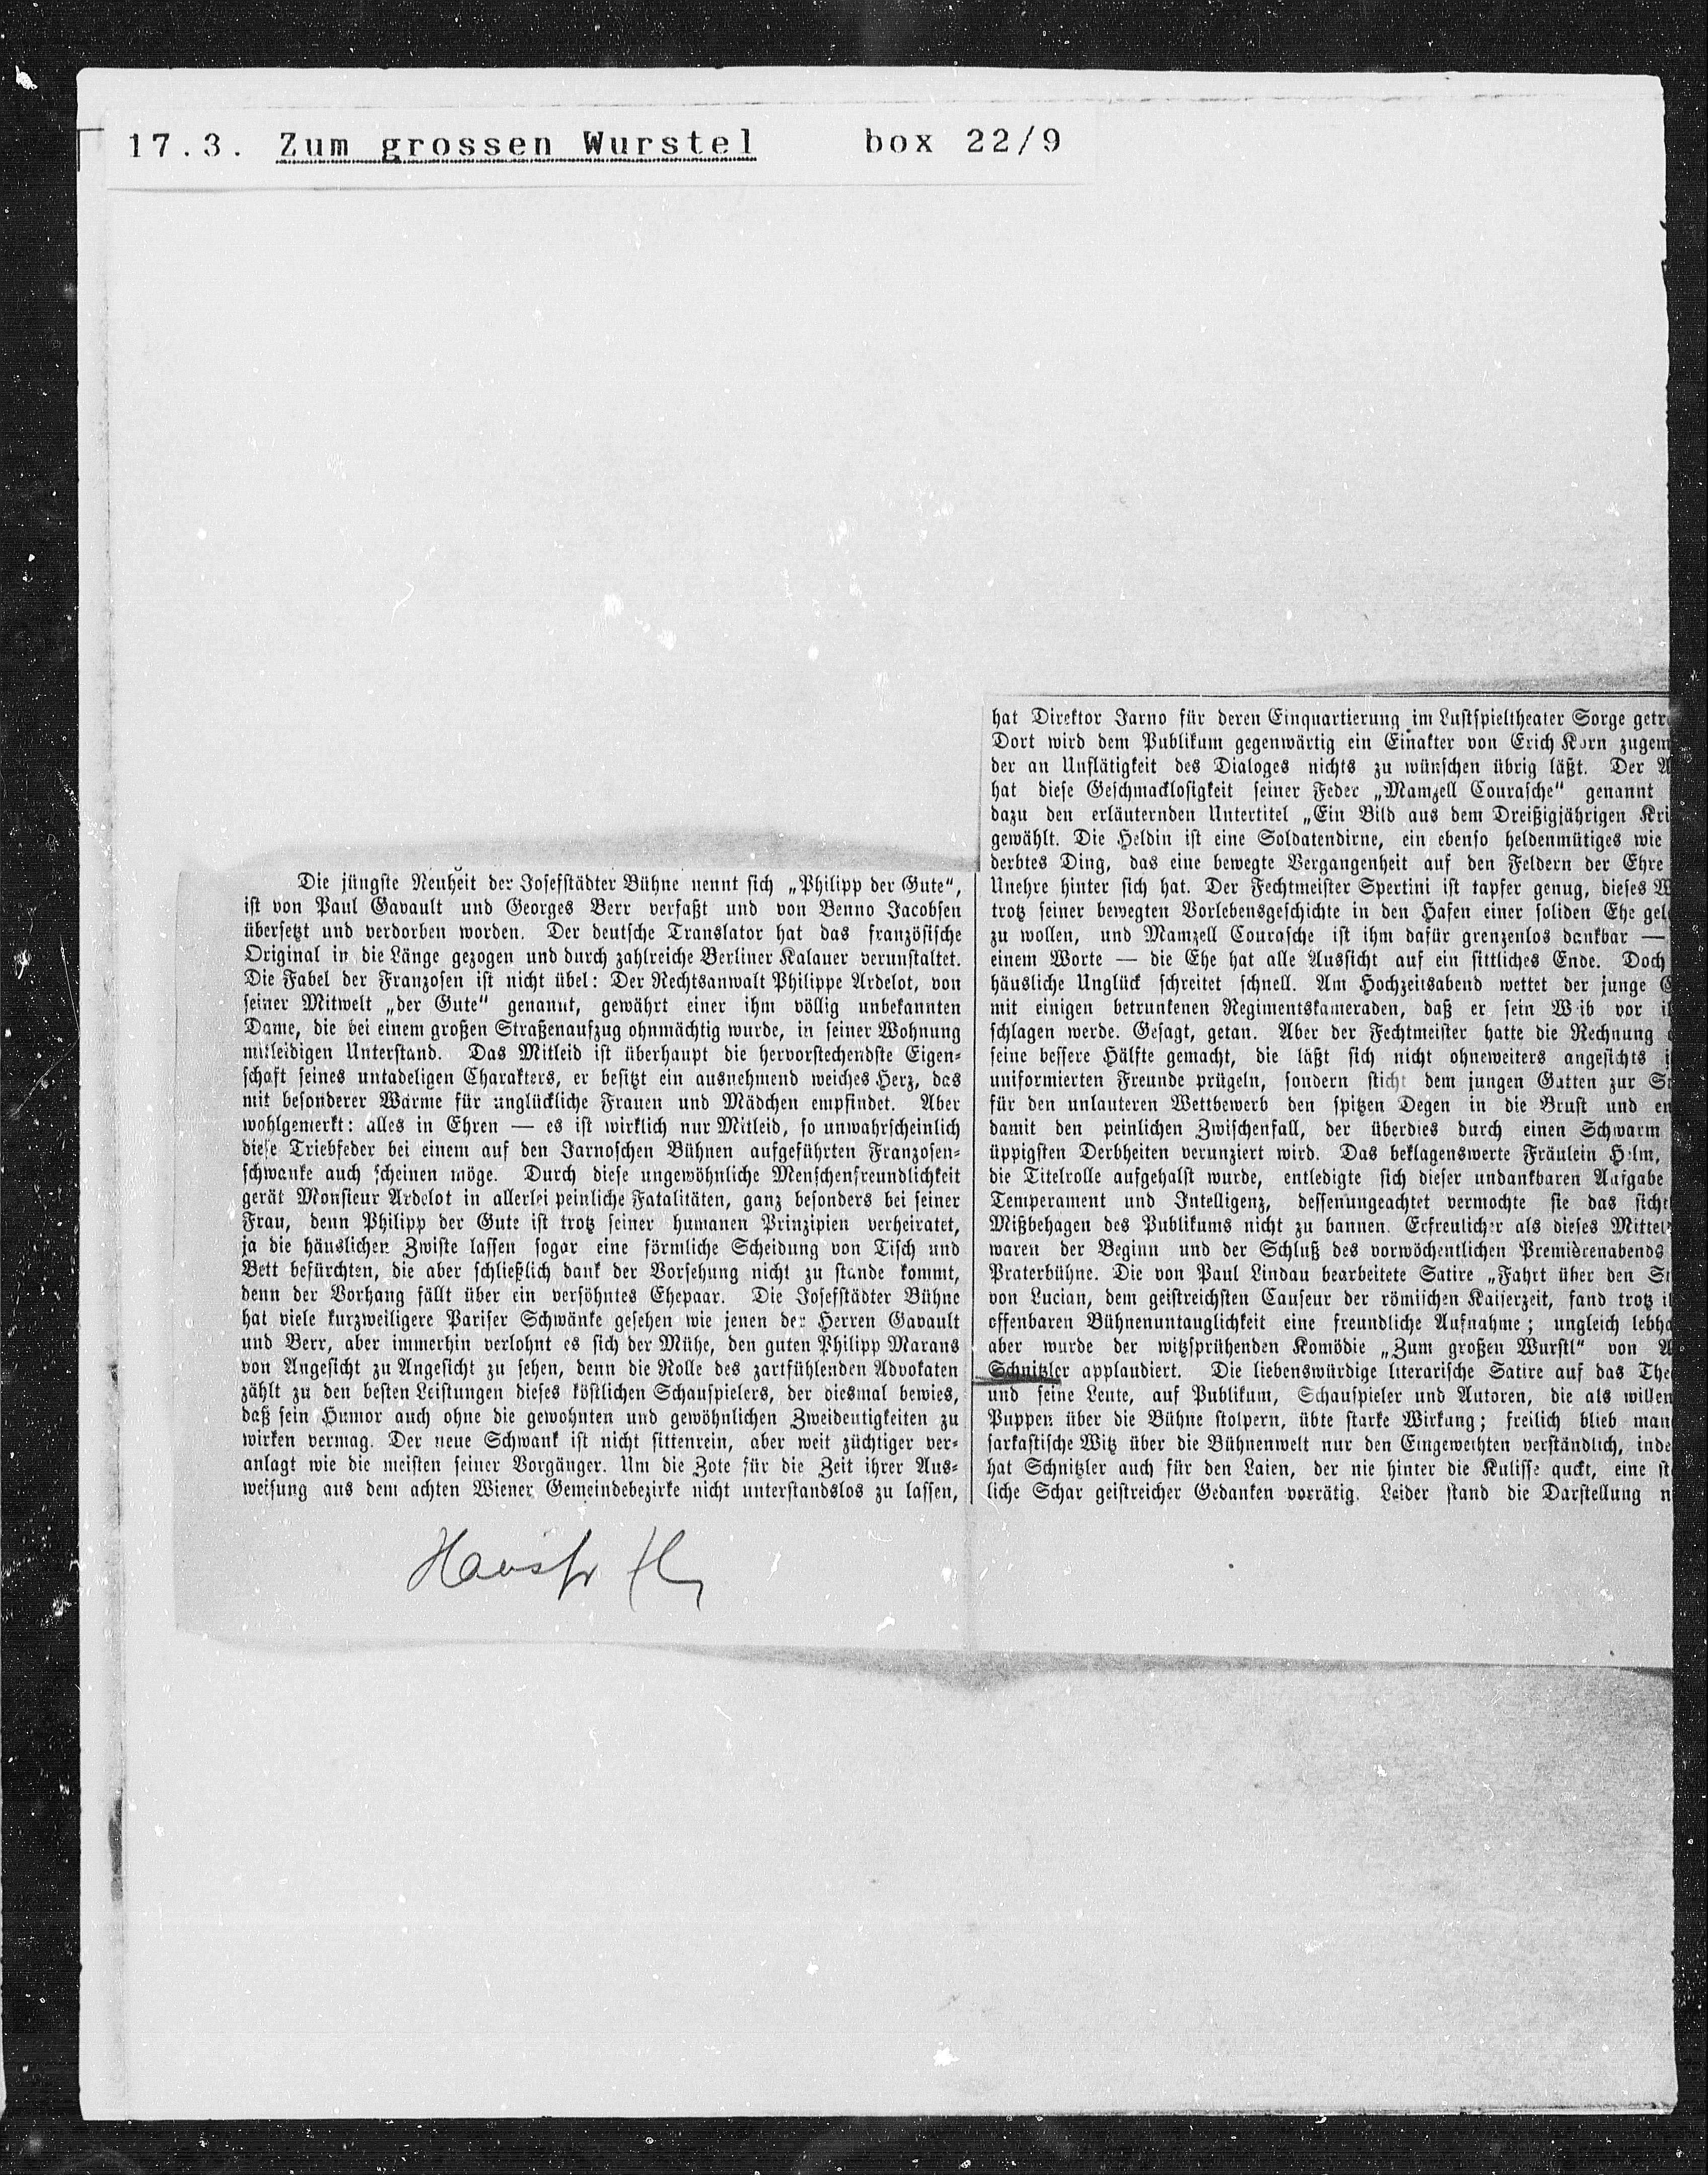 17.3. Zum grossen Wurstel box 22/9
Die jüngste Neuheit der Josefstädter Bühne nennt sich „Philipp der Gute“,
ist von Paul Gavault und Georges Berr verfaßt und von Benno Jacobsen
übersetzt und verdorben worden. Der deutsche Translator hat das französische
Original in die Länge gezogen und durch zahlreiche Berliner Kalauer verunstaltet.
Die Fabel der Franzosen ist nicht übel: Der Rechtsanwalt Philippe Ardelot, von
seiner Mitwelt „der Gute“ genannt, gewährt einer ihm völlig unbekannten
Dame, die bei einem großen Straßenaufzug ohnmächtig wurde, in seiner Wohnung
mitleidigen Unterstand. Das Mitleid ist überhaupt die hervorstechendste Eigen-
schaft seines untadeligen Charakters, er besitzt ein ausnehmend weiches Herz, das
mit besonderer Wärme für unglückliche Frauen und Mädchen empfindet. Aber
wohlgemerkt: alles in Ehren — es ist wirklich nur Mitleid, so unwahrscheinlich
diese Triebfeder bei einem auf den Jarnoschen Bühnen aufgeführten Franzosen-
schwanke auch scheinen möge. Durch diese ungewöhnliche Menschenfreundlichkeit
gerät Monsieur Ardelot in allerlei peinliche Fatalitäten, ganz besonders bei seiner
Frau, denn Philipp der Gute ist trotz seiner humanen Prinzipien verheiratet,
ja die häuslichen Zwiste lassen sogar eine förmliche Scheidung von Tisch und
Bett befürchten, die aber schließlich dank der Vorsehung nicht zu stande kommt,
denn der Vorhang fällt über ein versöhntes Ehepaar. Die Josefstädter Bühne
hat viele kurzweiligere Pariser Schwänke gesehen wie jenen der Herren Gavault
und Berr, aber immerhin verlohnt es sich der Mühe, den guten Philipp Marans
von Angesicht zu Angesicht zu sehen, denn die Rolle des zartfühlenden Advokaten
zählt zu den besten Leistungen dieses köstlichen Schauspielers, der diesmal bewies,
daß sein Humor auch ohne die gewohnten und gewöhnlichen Zweideutigkeiten zu
wirken vermag. Der neue Schwank ist nicht sittenrein, aber weit züchtiger ver-
anlagt wie die meisten seiner Vorgänger. Um die Zote für die Zeit ihrer Aus-
weisung aus dem achten Wiener Gemeindebezirke nicht unterstandslos zu lassen,
hat Direktor Jarno für deren Einquartierung im Lustspieltheater Sorge getr
Dort wird dem Publikum gegenwärtig ein Einakter von Erich Korn zugem
der an Unflätigkeit des Dialoges nichts zu wünschen übrig läßt. Der A
hat diese Geschmacklosigkeit seiner Feder „Mamzell Courasche“ genannt
dazu den erläuternden Untertitel „Ein Bild aus dem Dreißigjährigen Kri
gewählt. Die Heldin ist eine Soldatendirne, ein ebenso heldenmütiges wie
derbtes Ding, das eine bewegte Vergangenheit auf den Feldern der Ehre
Unehre hinter sich hat. Der Fechtmeister Spertini ist tapfer genug, dieses W
trotz seiner bewegten Vorlebensgeschichte in den Hafen einer soliden Ehe gel
zu wollen, und Mamzell Courasche ist ihm dafür grenzenlos dankbar —
einem Worte — die Ehe hat alle Aussicht auf ein sittliches Ende. Doch
häusliche Unglück schreitet schnell. Am Hochzeitsabend wettet der junge G
mit einigen betrunkenen Regimentskameraden, daß er sein Weib vor i
schlagen werde. Gesagt, getan. Aber der Fechtmeister hatte die Rechnung
seine bessere Hälfte gemacht, die läßt sich nicht ohneweiters angesichts
uniformierten Freunde prügeln, sondern sticht dem jungen Gatten zur S
für den unlauteren Wettbewerb den spitzen Degen in die Brust und en
damit den peinlichen Zwischenfall, der überdies durch einen Schwarm
üppigsten Derbheiten verunziert wird. Das beklagenswerte Fräulein Helm,
die Titelrolle aufgehalst wurde, entledigte sich dieser undankbaren Aufgabe
Temperament und Intelligenz, dessenungeachtet vermochte sie das sicht
Mißbehagen des Publikums nicht zu bannen. Erfreulicher als dieses Mittel
waren der Beginn und der Schluß des vorwöchentlichen Premièrenabends
Praterbühne. Die von Paul Lindau bearbeitete Satire „Fahrt über den St
von Lucian, dem geistreichsten Causeur der römischen Kaiserzeit, fand trotz i
offenbaren Bühnenuntauglichkeit eine freundliche Aufnahme; ungleich lebha
aber wurde der witzsprühenden Komödie „Zum großen Wurstl“ von A
Schnitzler applaudiert. Die liebenswürdige literarische Satire auf das The
und seine Leute, auf Publikum, Schauspieler und Autoren, die als willen
Puppen über die Bühne stolpern, übte starke Wirkung; freilich blieb man
sarkastische Witz über die Bühnenwelt nur den Eingeweihten verständlich, inde
hat Schnitzler auch für den Laien, der nie hinter die Kulisse guckt, eine st
liche Schar geistreicher Gedanken vorrätig. Leider stand die Darstellung n